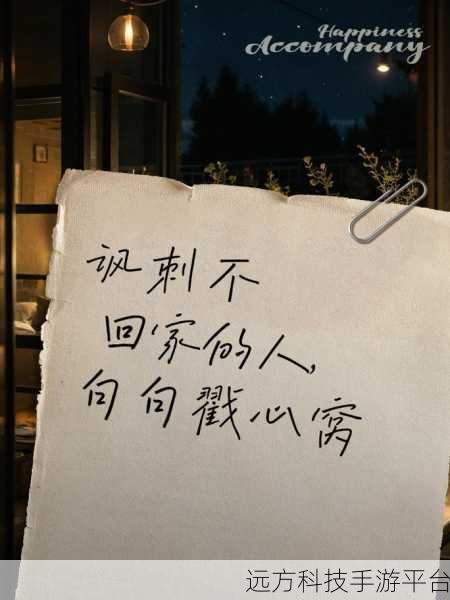 Happiness
Accompany
讽刺不
回家的人,
句句戳心窝
远方科技手游平台